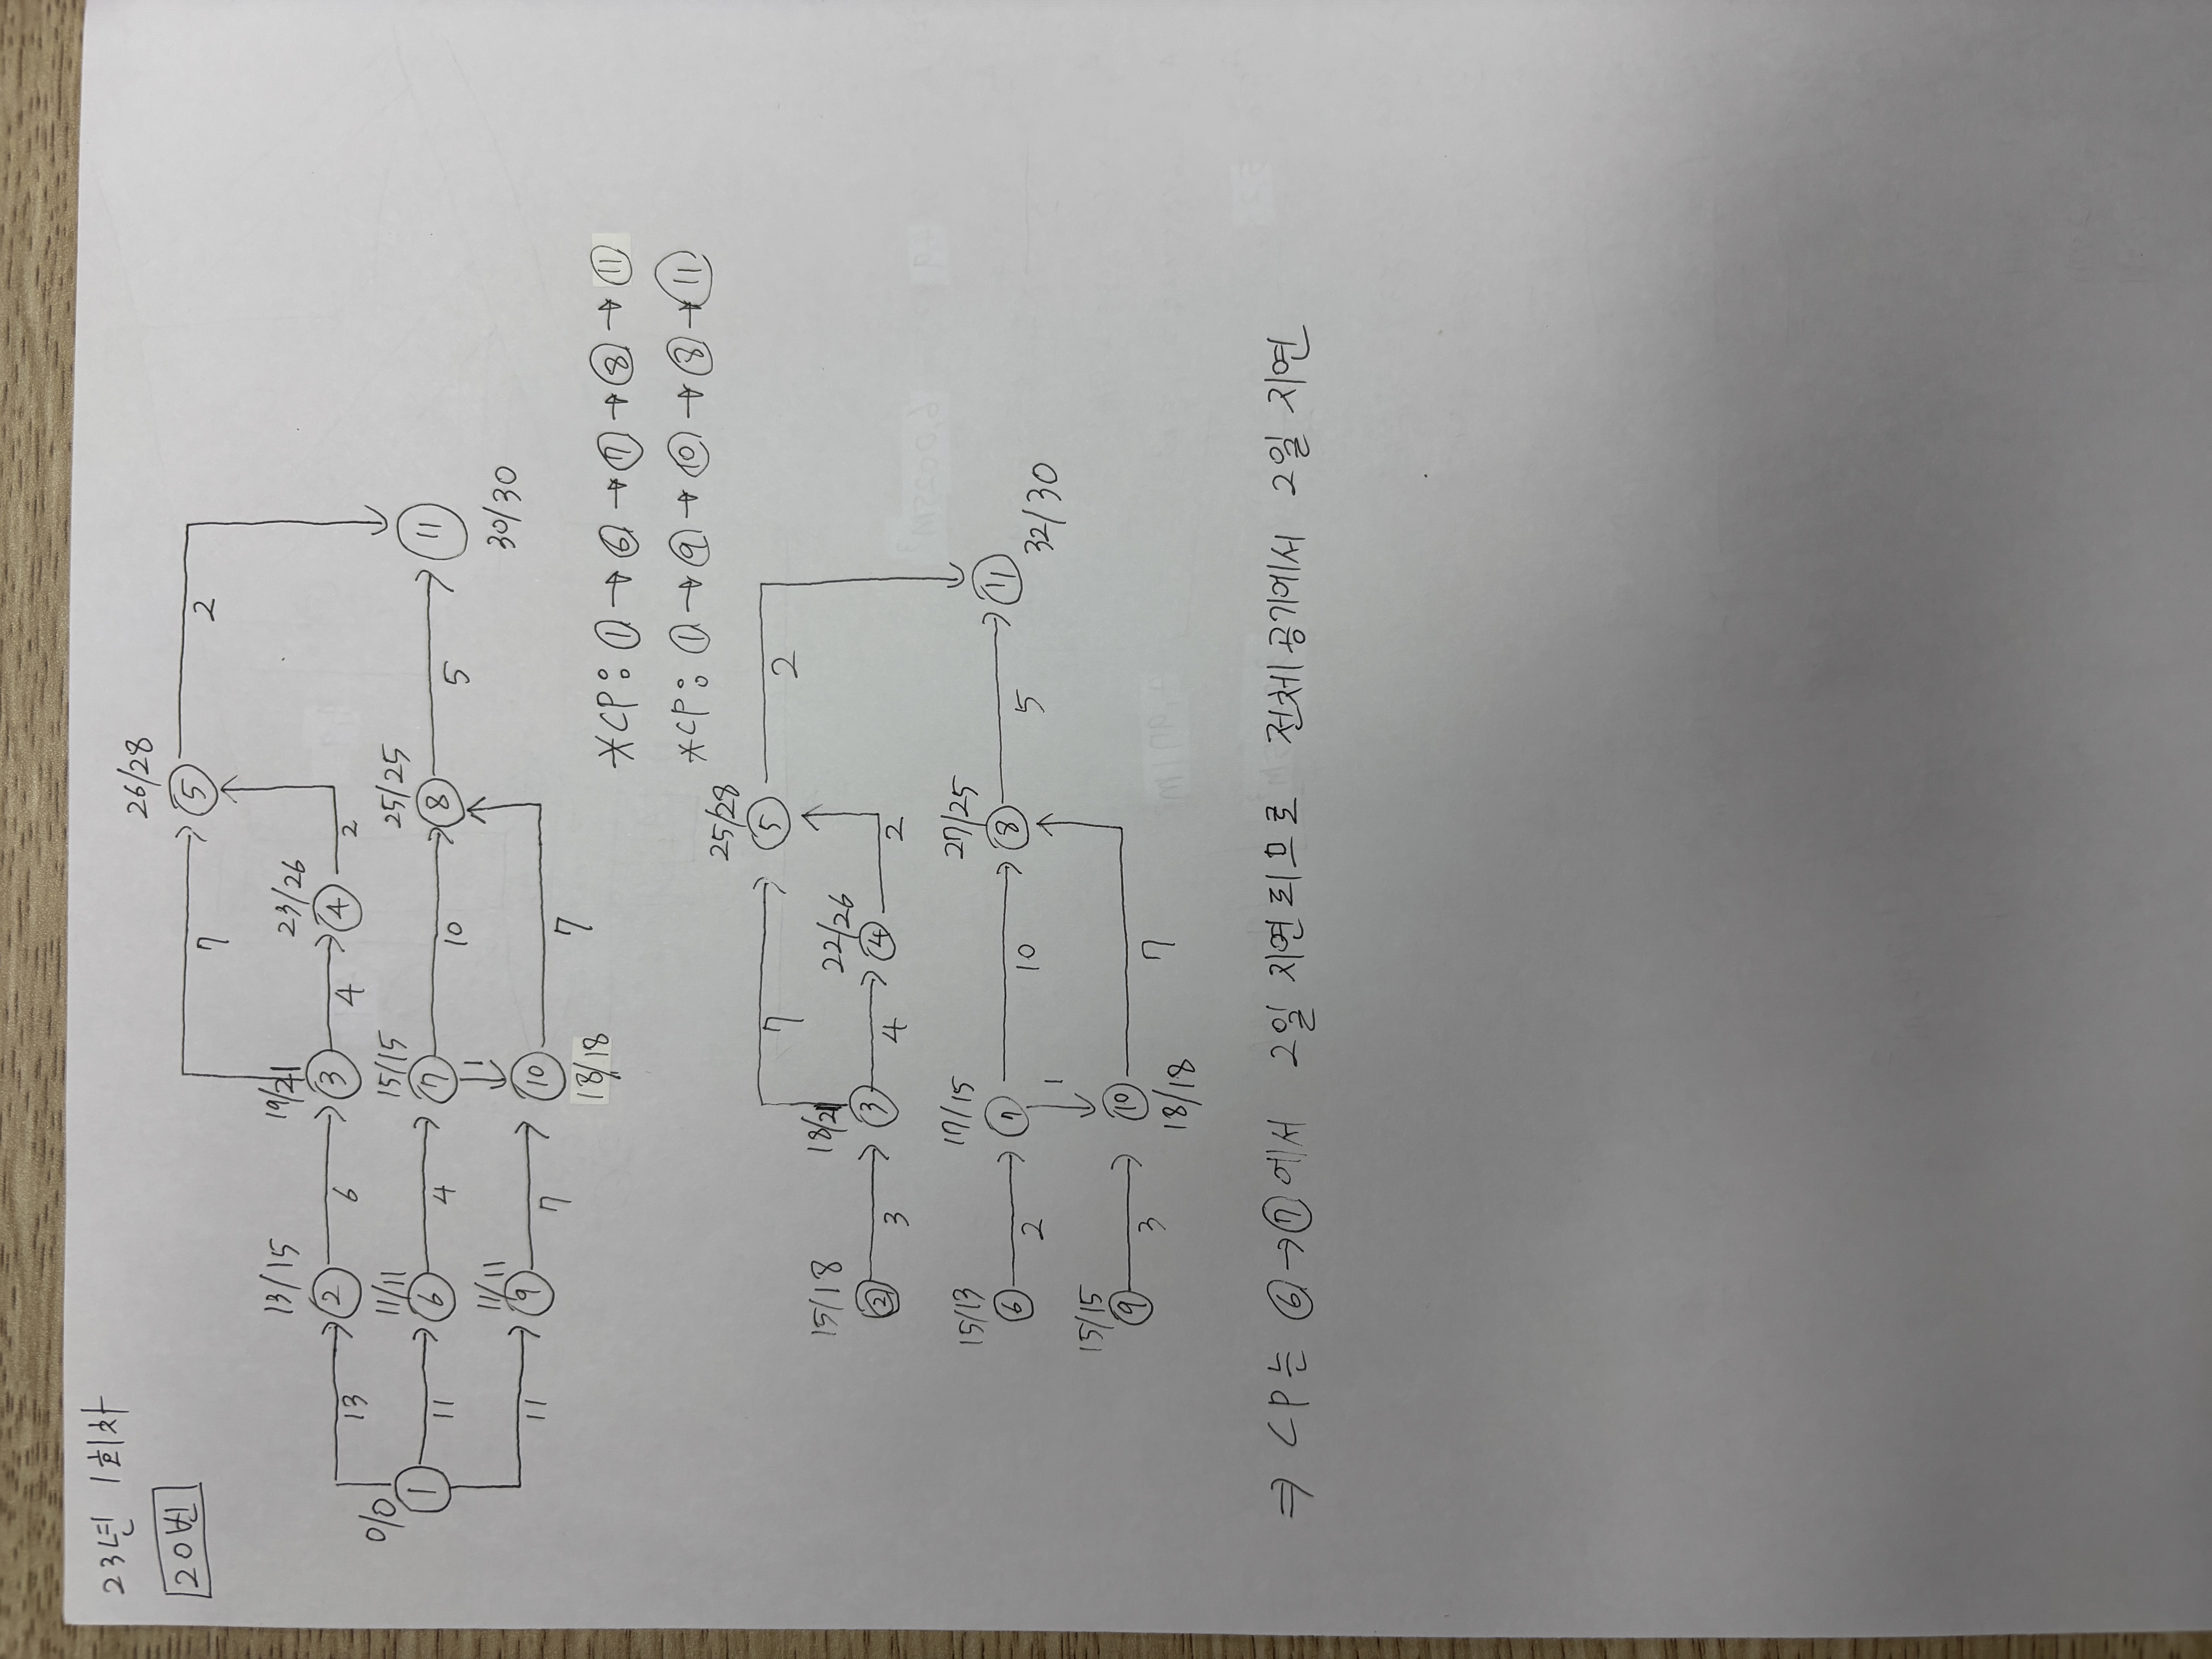 23년 1회차
20번
26/28
5
7
2
19/21
23/26
13/15
2
6
3
4
4
2
0/0
13
11/11
15/15
25/25
1
11
6
4
7
10
8
5
11
30/30
11/11
1
11
9
7
10
7
18/18
*CP: ①→⑥→⑦→⑧→⑪
*CP: ①→⑨→⑩→⑧→⑪
25/28
5
7
2
15/18
18/21
22/26
2
3
3
4
4
2
15/13
17/15
27/25
6
2
7
10
8
5
11
32/30
15/15
1
9
3
10
7
18/18
⇒ CP는 ⑥→⑦에서 2일 지연되므로 전체공기에서 2일 지연